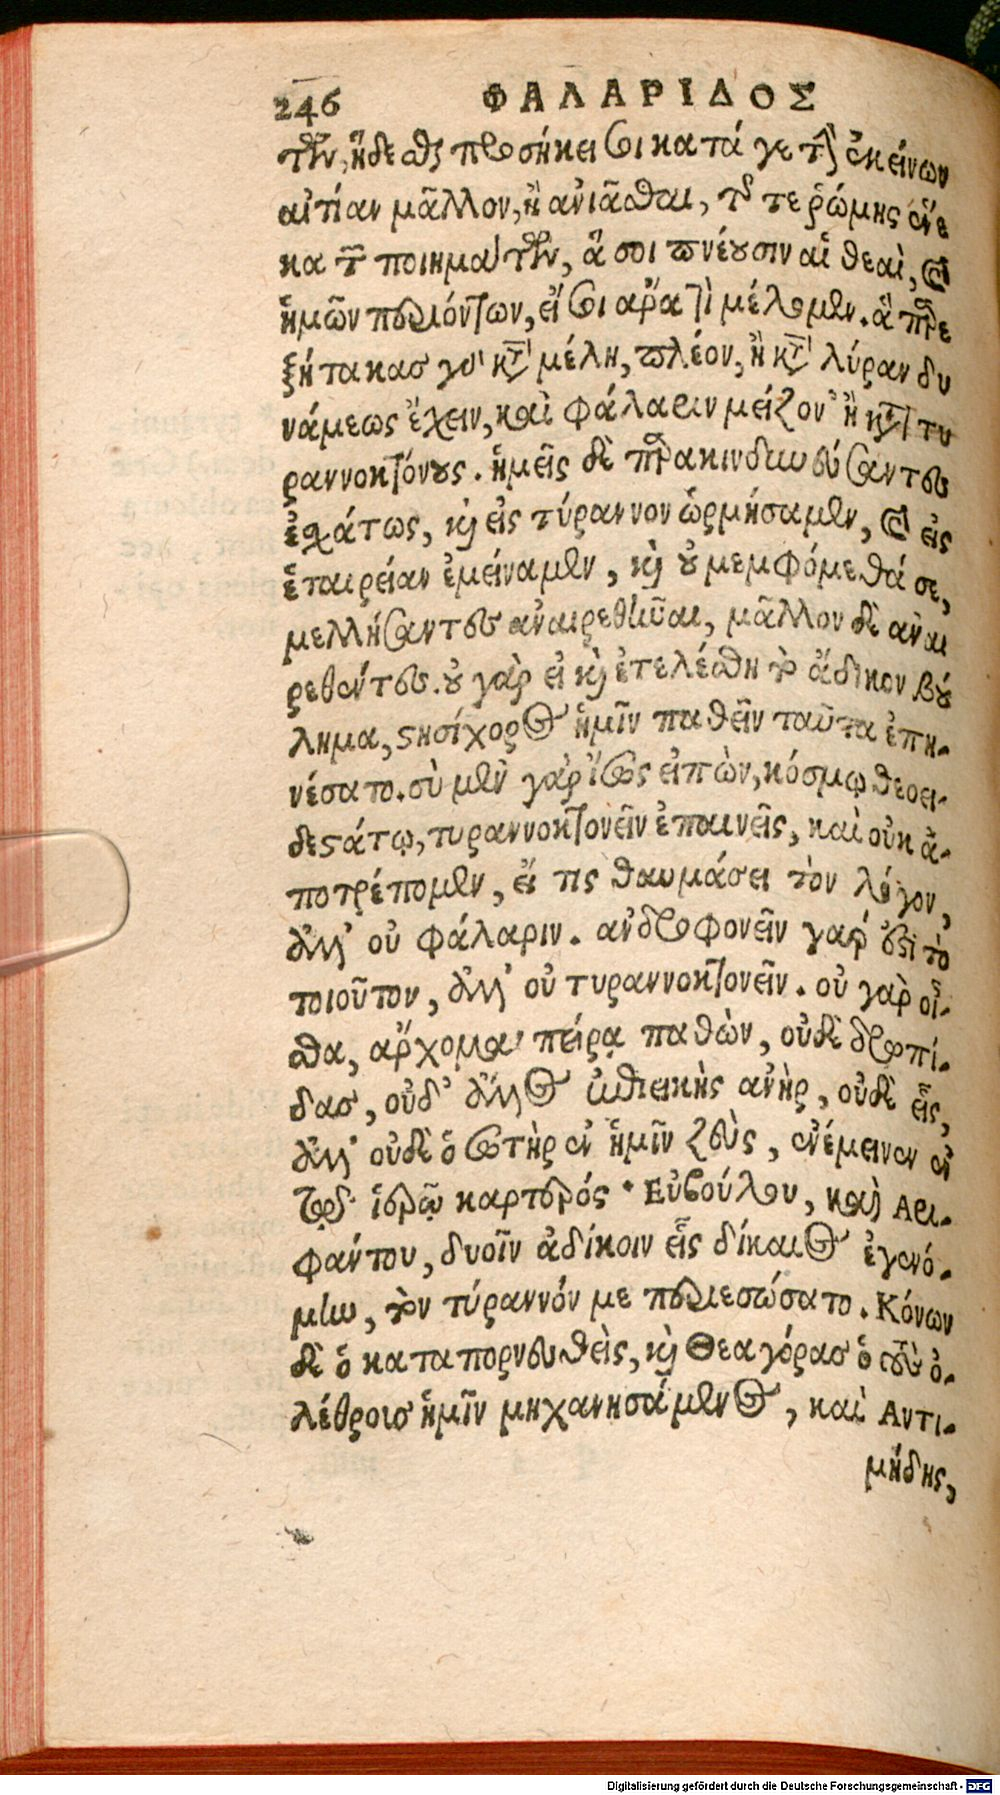 246 ΦΑΛΑΡΙΔΟΣ
των, ἥδεσθαι προσήκει σοι κατά γε τὴν ἐκείνων
αἰτίαν μᾶλλον, ἢ ἀνιᾶσθαι, τῆς τε ῥώμης ἕνε
κα τῶν ποιημάτων, ἅ σοι πνέουσιν αἱ θεαὶ, καὶ
ἡμῶν περιόντων, εἴ σοι ἄρα τὶ μέλομεν. ἃ παρε
ξήτακας γὰρ κατὰ μέλη, πλέον, ἢ κατὰ λύραν δυ
νάμεως ἔχειν, καὶ Φάλαριν μεῖζον ἢ κατὰ τυ
ραννοκτόνους. ἡμεῖς δὲ παρακινδυνεύσαντες
ἐσχάτως, καὶ εἰς τύραννον ὡρμήσαμεν, καὶ εἰς
ἑταιρείαν ἐμείναμεν, καὶ οὐ μεμφόμεθά σε,
μελλήσαντες ἀναιρεθῆναι, μᾶλλον δὲ ἀναι
ρεθέντες. οὐ γὰρ εἰ καὶ ἐτελέσθη τὸ ἄδικον βού
λημα, στησίχορος ἡμῖν παθεῖν ταῦτα ἐπῃ-
νέσατο. σὺ μὲν γὰρ ἴσως εἰπὼν, κόσμῳ θεοει-
δεστάτῳ, τυραννοκτονεῖν ἐπαινεῖς, καὶ οὐκ ἀ-
ποτρέπομεν, εἴ τις θαυμάσει τὸν λόγον,
ἀλλ' οὐ Φάλαριν. ἀνδροφονεῖν γάρ ἐστι τὸ
τοιοῦτον, ἀλλ' οὐ τυραννοκτονεῖν. οὐ γὰρ οἶ-
σθα, ἄρχομαι πείρᾳ παθὼν, οὐδὲ δρωπί-
δας, οὐδ' ἄλλος ὠθιεικὴς ἀνὴρ, οὐδὲ εἷς,
ἀλλ' οὐδὲ ὁ σωτὴρ ἐν ἡμῖν ζεὺς, ἐνέμεινεν ἐν
ἱδρῷ καρτερός. Εὐβούλου, καὶ Αρι-
φάντου, δυοῖν ἀδίκοιν εἷς δίκαιος ἐγενό-
μην, τὸν τύραννόν με περιεσώσατο. Κόνων
δὲ ὁ καταπορνευθεὶς, καὶ Θεαγόρας ὁ σὺν ὀ-
λέθροις ἡμῖν μηχανησάμενος, καὶ Αντι-
μήδης,
Digitalisierung gefördert durch die Deutsche Forschungsgemeinschaft - DFG